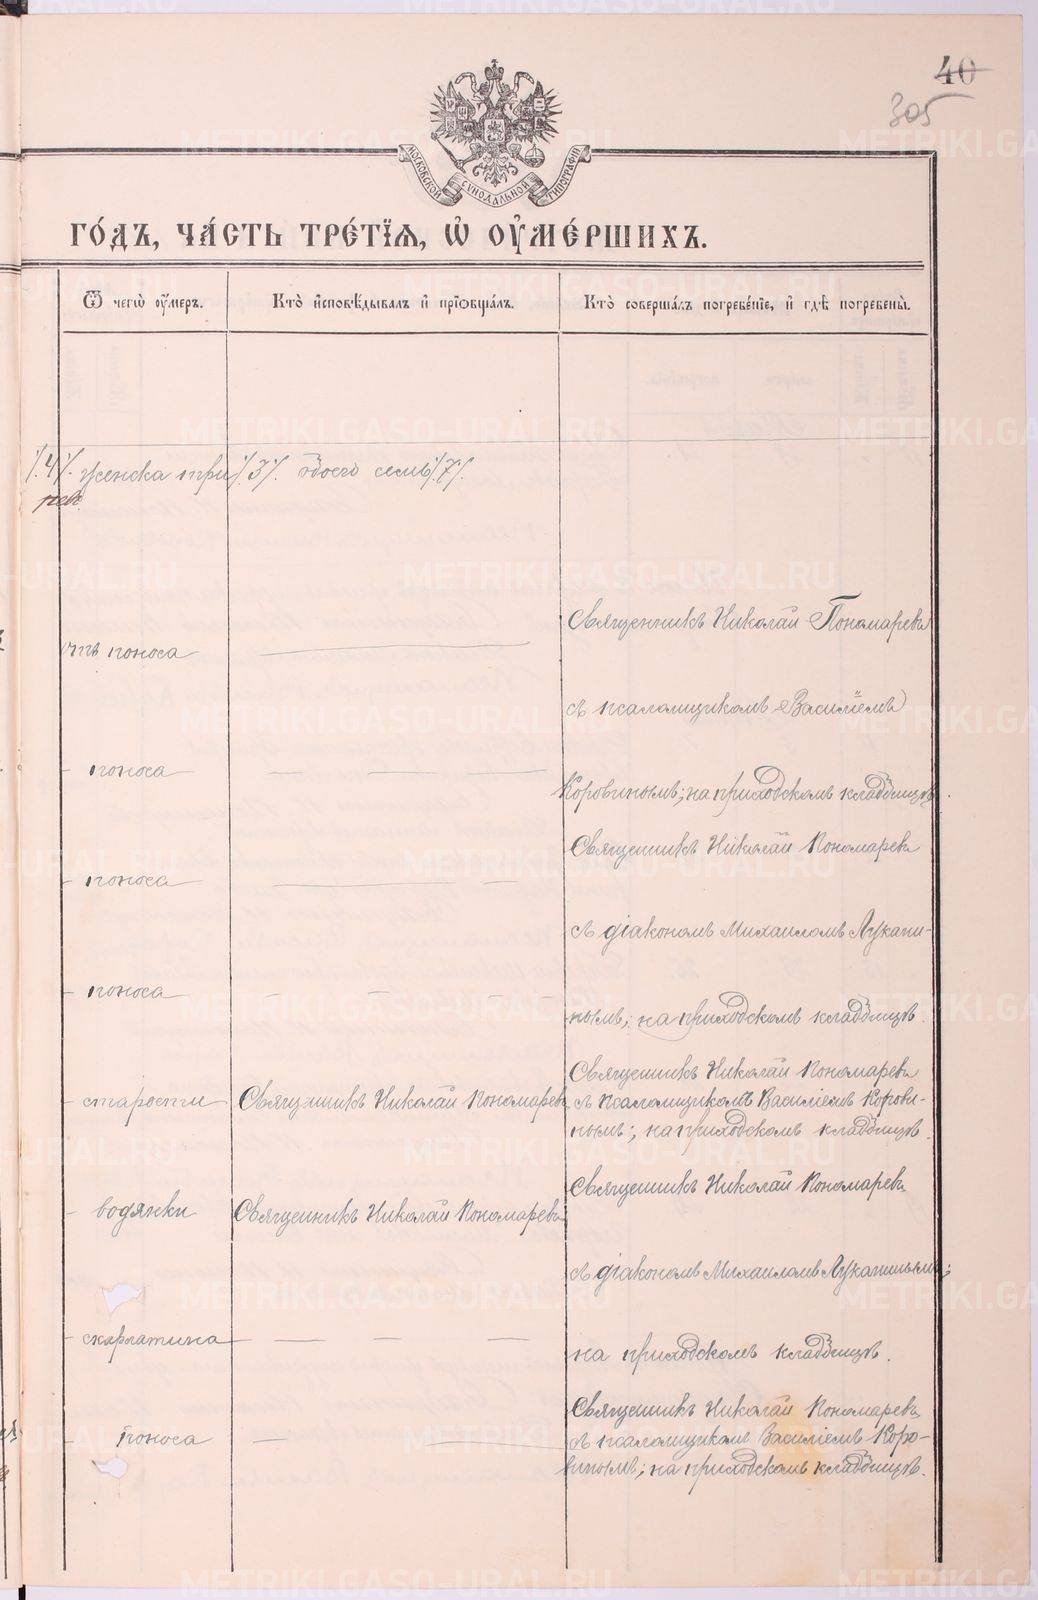 40
305
МОСКОВСКОЙ СѴНОДАЛЬНОЙ ТИПОГРАФІИ
ГО́ДЪ, ЧА́СТЬ ТРЕ́ТЇѦ, Ѡ҆ ОУ҆МЕ́РШИХЪ.
Ѿ чегѡ̀ оу҆́меръ.
Кто̀ и҆сповѣ́дывалъ и҆ прїѡбща́лъ.
Кто̀ соверша́лъ погребе́нїе, и҆ гдѣ̀ погребены̀.
/.4/. женска три /.3/. обоего семь /.7/.
Священникъ Николай Пономаревъ
отъ поноса
съ псаломщикомъ Василіемъ
- поноса — — —
Коровинымъ; на приходскомъ кладбищѣ.
Священникъ Николай Пономаревъ
- поноса — —
съ діакономъ Михаиломъ Лукани-
- поноса — — — —
нымъ; на приходскомъ кладбищѣ.
Священникъ Николай Пономаревъ
- старости Священникъ Николай Пономаревъ съ псаломщикомъ Василіемъ Корови-
нымъ; на приходскомъ кладбищѣ.
Священникъ Николай Пономаревъ
- водянки Священникъ Николай Пономаревъ
съ діакономъ Михаиломъ Луканинымъ;
- скарлатина — — —
на приходскомъ кладбищѣ.
Священникъ Николай Пономаревъ
- поноса — — съ псаломщикомъ Василіемъ Коро-
винымъ; на приходскомъ кладбищѣ.
METRIKI.GASO-URAL.RU